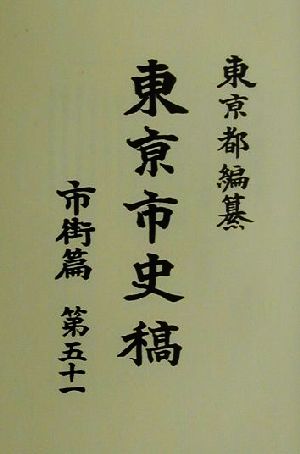 東京都編纂
東京市史稿
市街篇 第五十一